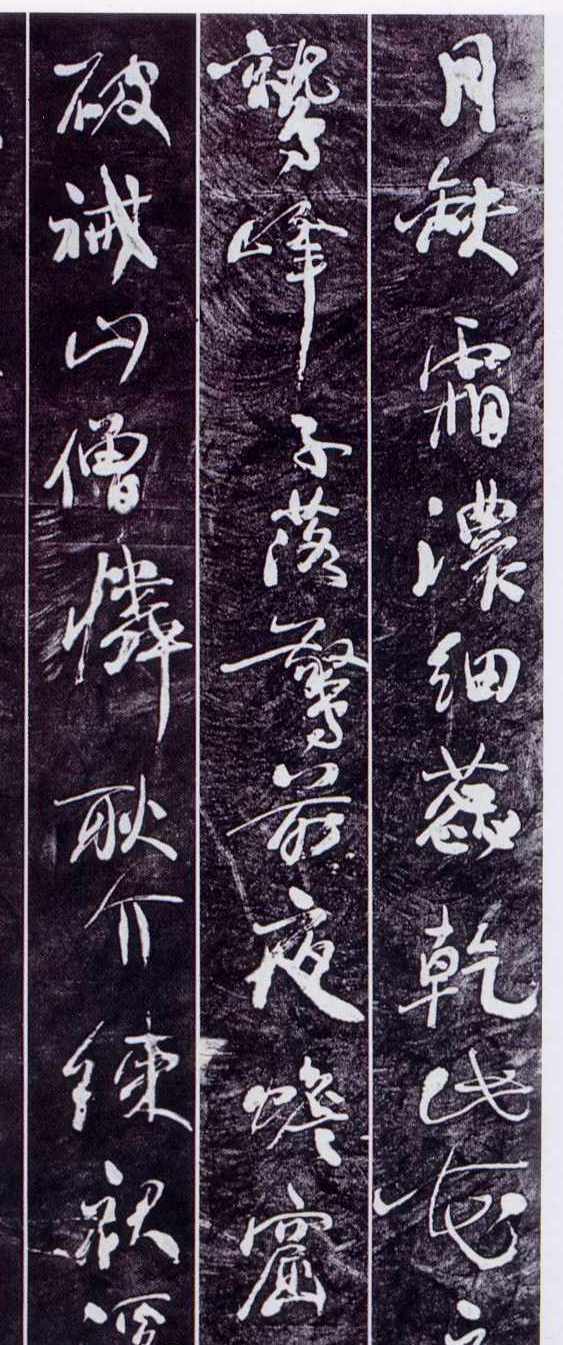 月缺霜濃細蕊乾此花
鷲峰子落驚前夜蟾窟
破裓山僧憐耿介練